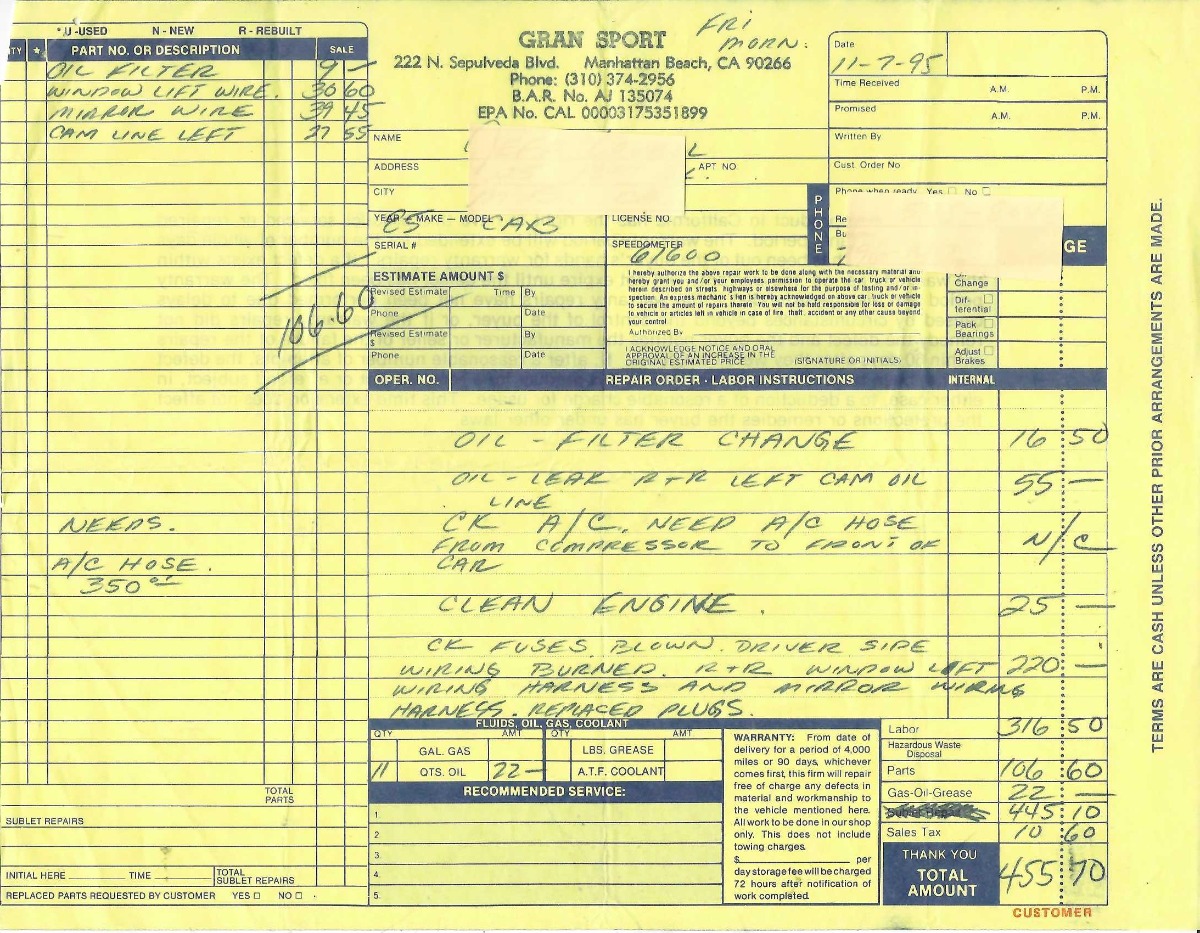 *U-USED N - NEW R - REBUILT
TY * PART NO. OR DESCRIPTION SALE
OIL FILTER 9 —
WINDOW LIFT WIRE. 30 60
MIRROR WIRE 39 45
CAM LINE LEFT 27 55
NEEDS.
A/C HOSE.
350
106.60
TOTAL PARTS
SUBLET REPAIRS
INITIAL HERE TIME TOTAL SUBLET REPAIRS
REPLACED PARTS REQUESTED BY CUSTOMER YES NO
FRI
MORN:
GRAN SPORT
222 N. Sepulveda Blvd. Manhattan Beach, CA 90266
Phone: (310) 374-2956
B.A.R. No. AJ 135074
EPA No. CAL 00003175351899
Date
11-7-95
Time Received A.M. P.M.
Promised A.M. P.M.
Written By
Cust. Order No
Phone when ready Yes No
PHONE
Re
Bu
GE
NAME
ADDRESS APT NO
CITY
YEAR — MAKE — MODEL LICENSE NO.
85 CAB
SERIAL # SPEEDOMETER
61600
ESTIMATE AMOUNT $
Revised Estimate Time By
$
Phone Date
Revised Estimate By
$
Phone Date
I hereby authorize the above repair work to be done along with the necessary material and
hereby grant you and/or your employees permission to operate the car, truck or vehicle
herein described on streets, highways or elsewhere for the purpose of testing and/or in-
spection. An express mechanic's lien is hereby acknowledged on above car, truck or vehicle
to secure the amount of repairs thereto. You will not be held responsible for loss or damage
to vehicle or articles left in vehicle in case of fire, theft, accident or any other cause beyond
your control
Authorized By
I ACKNOWLEDGE NOTICE AND ORAL
APPROVAL OF AN INCREASE IN THE
ORIGINAL ESTIMATED PRICE (SIGNATURE OR INITIALS)
Change
Dif-
ferential
Pack
Bearings
Adjust
Brakes
OPER. NO. REPAIR ORDER - LABOR INSTRUCTIONS INTERNAL
OIL - FILTER CHANGE 16 50
OIL - LEAK R+R LEFT CAM OIL 55 —
LINE
CK A/C. NEED A/C HOSE
FROM COMPRESSOR TO FRONT OF N/C
CAR
CLEAN ENGINE. 25 —
CK FUSES BLOWN. DRIVER SIDE
WIRING BURNED. R+R WINDOW LEFT 220 —
WIRING HARNESS AND MIRROR WIRING
HARNESS. REPLACED PLUGS.
FLUIDS, OIL, GAS, COOLANT
QTY AMT QTY AMT
GAL. GAS LBS. GREASE
11 QTS. OIL 22 — A.T.F. COOLANT
RECOMMENDED SERVICE:
1
2
3.
4.
5.
WARRANTY: From date of
delivery for a period of 4,000
miles or 90 days, whichever
comes first, this firm will repair
free of charge any defects in
material and workmanship to
the vehicle mentioned here.
All work to be done in our shop
only. This does not include
towing charges.
$ per
day storage fee will be charged
72 hours after notification of
work completed.
Labor 316 50
Hazardous Waste
Disposal
Parts 106 60
Gas-Oil-Grease 22 —
445 10
Sales Tax 10 60
THANK YOU
TOTAL
AMOUNT 455 70
CUSTOMER
TERMS ARE CASH UNLESS OTHER PRIOR ARRANGEMENTS ARE MADE.